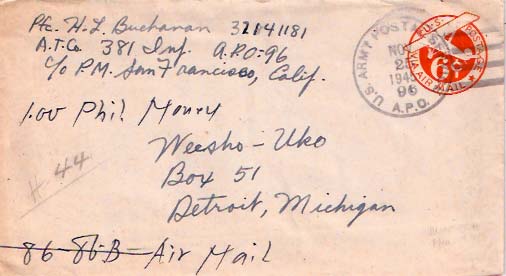 Pfc. H. L. Buchanan 32141181
A.T. Co. 381 Inf. A.P.O. 96
c/o P.M. San Francisco, Calif.
U.S. ARMY POSTAL
NO
2
194
96
A.P.O.
U.S. POSTAGE
6¢
VIA AIR MAIL
1.00 Phil Money
Weesho-Uko
Box 51
Detroit, Michigan
# 44
86 86-B Air Mail